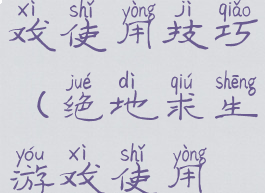 xì shǐ yòng jì qiǎo
戏使用技巧
jué dì qiú shēng
（绝地求生
yóu xì shǐ yòng
游戏使用